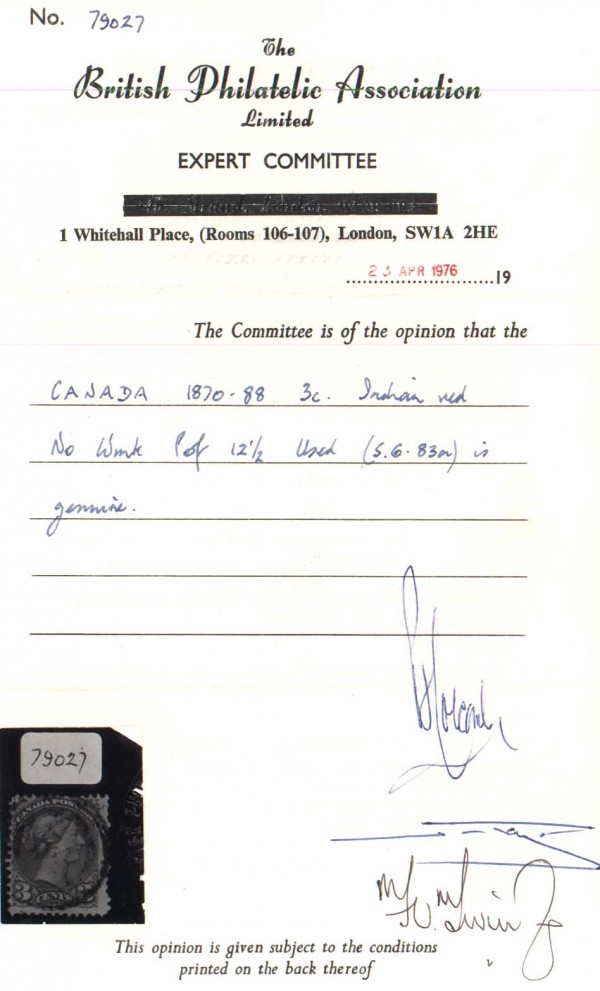 No. 79027
The
British Philatelic Association
Limited
EXPERT COMMITTEE
1 Whitehall Place, (Rooms 106-107), London, SW1A 2HE
23 APR 1976 19
The Committee is of the opinion that the
CANADA 1870-88 3c. Indian red
No Wmk Perf 12½ Used (S.G. 83a) is
genuine.
79027
CANADA POSTAGE
3 CENTS
This opinion is given subject to the conditions
printed on the back thereof